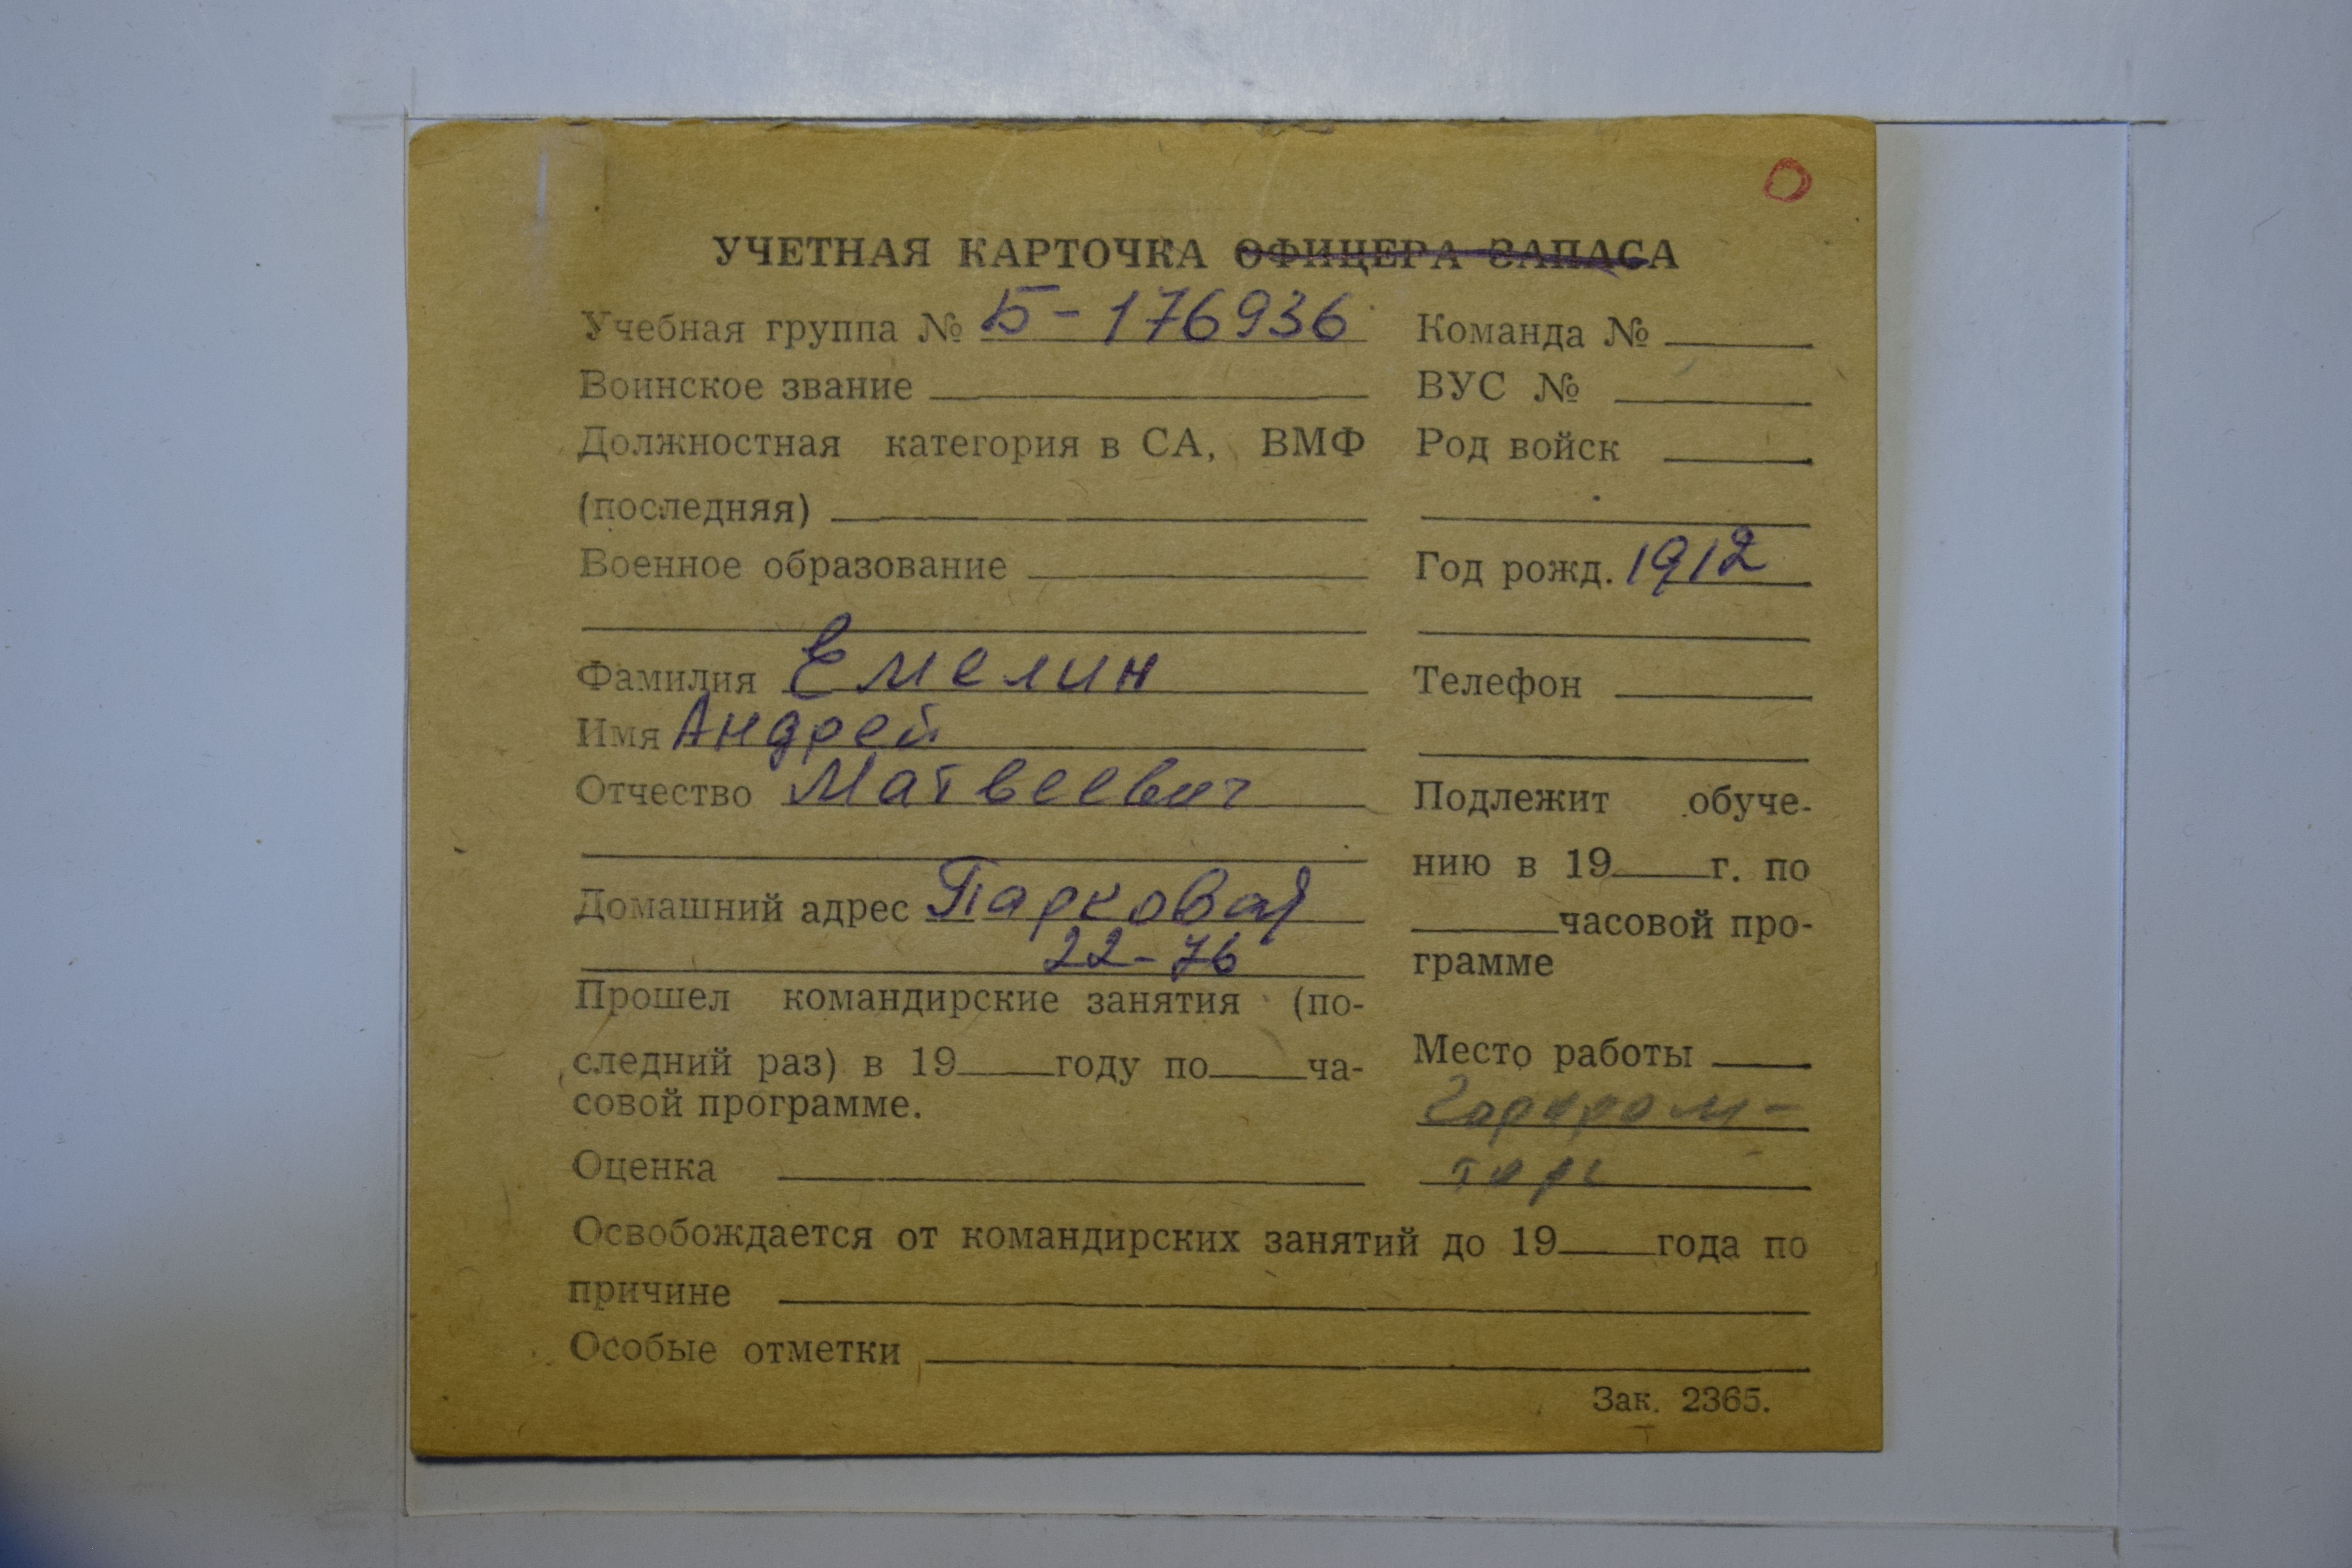 О
УЧЕТНАЯ КАРТОЧКА ОФИЦЕРА ЗАПАСА
Учебная группа № Б-176936
Воинское звание
Должностная категория в СА, ВМФ
(последняя)
Военное образование
Фамилия Емелин
Имя Андрей
Отчество Матвеевич
Домашний адрес Парковая
22-76
Прошел командирские занятия (по-
следний раз) в 19 году по ча-
совой программе.
Оценка
Команда №
ВУС №
Род войск
Год рожд. 1912
Телефон
Подлежит обуче-
нию в 19 г. по
часовой про-
грамме
Место работы
Горпром-
торг
Освобождается от командирских занятий до 19 года по
причине
Особые отметки
Зак. 2365.